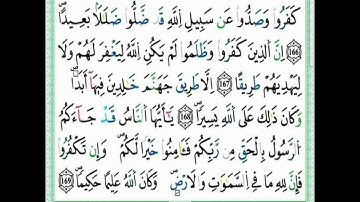 كَفَرُوا۟ وَصَدُّوا۟ عَن سَبِيلِ ٱللَّهِ قَد ضَّلُّوا۟ ضَلَٰلَۢا بَعِيدًا
١٦٦ إِنَّ ٱلَّذِينَ كَفَرُوا۟ وَظَلَمُوا۟ لَمْ يَكُنِ ٱللَّهُ لِيَغْفِرَ لَهُمْ وَلَا
لِيَهْدِيَهُمْ طَرِيقًا ١٦٧ إِلَّا طَرِيقَ جَهَنَّمَ خَٰلِدِينَ فِيهَآ أَبَدًا
وَكَانَ ذَٰلِكَ عَلَى ٱللَّهِ يَسِيرًا ١٦٨ يَٰٓأَيُّهَا ٱلنَّاسُ قَدْ جَآءَكُمُ
ٱلرَّسُولُ بِٱلْحَقِّ مِن رَّبِّكُمْ فَـَٔامِنُوا۟ خَيْرًا لَّكُمْ وَإِن تَكْفُرُوا۟
فَإِنَّ لِلَّهِ مَا فِى ٱلسَّمَٰوَٰتِ وَٱلْأَرْضِ وَكَانَ ٱللَّهُ عَلِيمًا حَكِيمًا ١٦٩